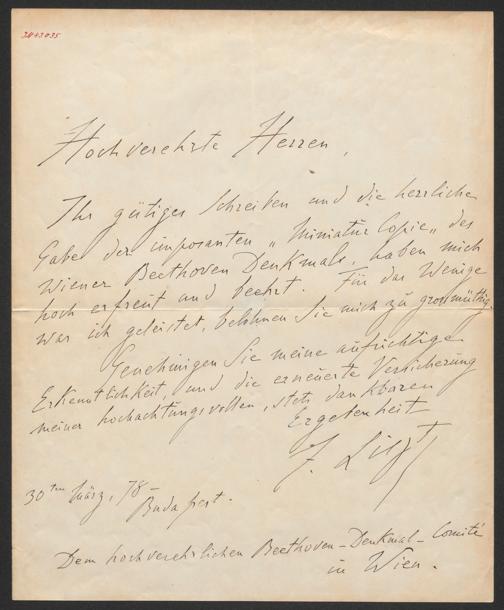 3043035
Hochverehrte Herren,
Ihr gütiges Schreiben und die herrliche
Gabe der imposanten „Miniatur Copie„ des
Wiener Beethoven Denkmals, haben mich
hoch erfreut und beehrt. Für das Wenige
was ich geleistet, belohnen Sie mich zu grossmüthig.
Genehmigen Sie meine aufrichtige
Erkentlichkeit, und die erneuerte Versicherung
meiner hochachtungsvollen, stets dankbaren
Ergebenheit
F. Liszt
30ten März, 78 –
Budapest.
Dem hochverehrlichen Beethoven-Denkmal-Comité
in Wien.